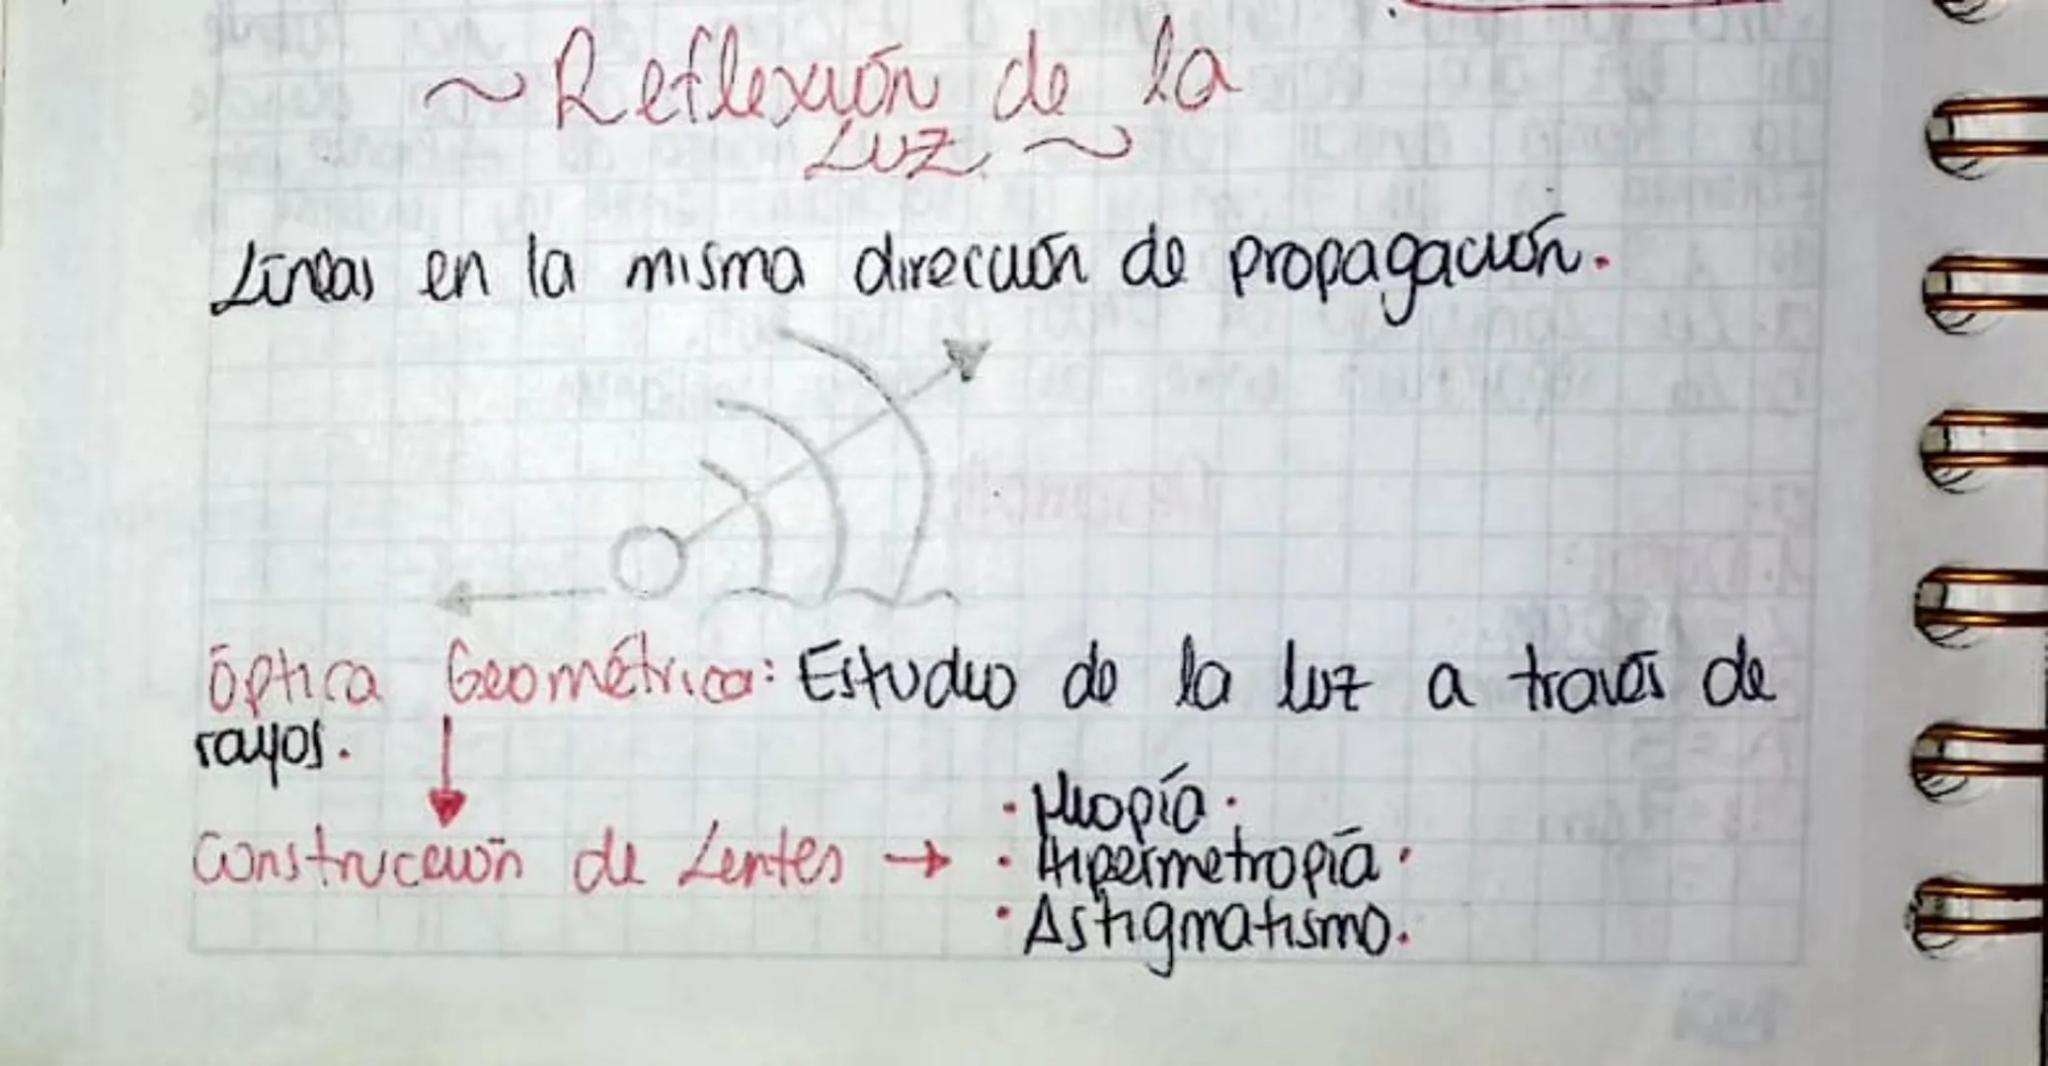 ~ Reflexión de la
Luz. ~
Líneas en la misma dirección de propagación.
Óptica Geométrica: Estudio de la luz a través de
rayos.
Construcción de Lentes → · Miopía.
· Hipermetropía.
· Astigmatismo.